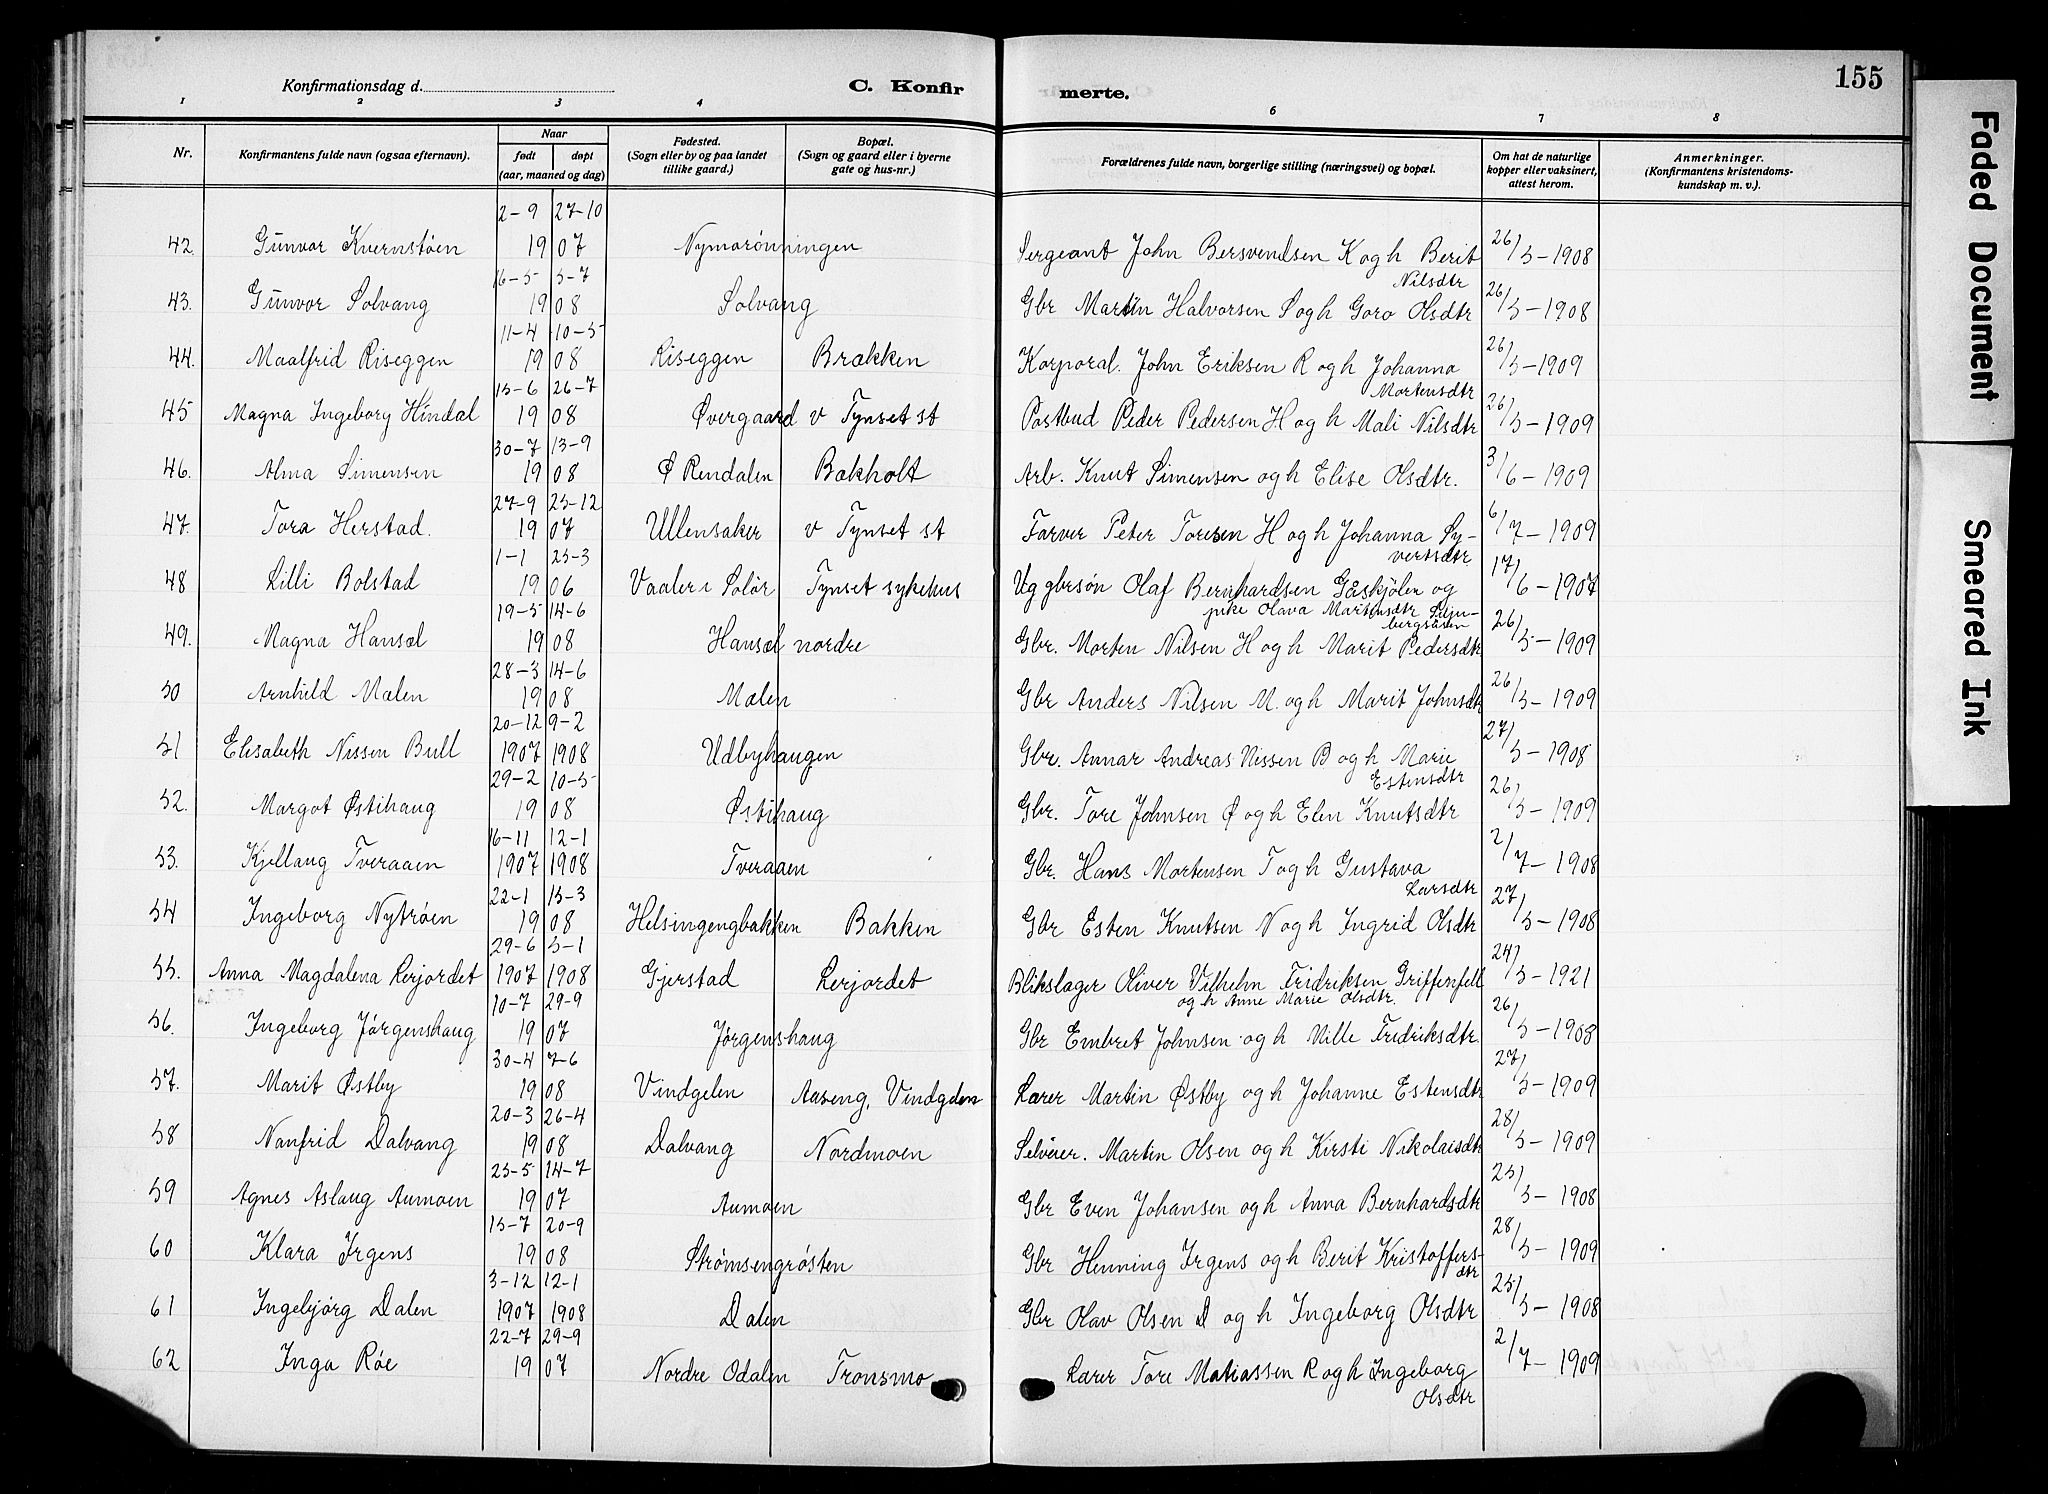 155
Konfirmationsdag d.
C. Konfirmerte.
1 2 3 4 5 6 7 8
Nr. Konfirmantens fulde navn (ogsaa efternavn). Naar født døpt (aar, maaned og dag) Fødested. (Sogn eller by og paa landet tillike gaard.) Bopæl. (Sogn og gaard eller i byerne gate og hus-nr.) Forældrenes fulde navn, borgerlige stilling (næringsvei) og bopæl. Om hat de naturlige kopper eller vaksinert, attest herom. Anmerkninger. (Konfirmantens kristendomskundskap m. v.).
42. Gunvor Kvernstøen 2-9 27-10 1907 Nymorønningen Sergeant John Bersvendsen K og h Berit Nilsdtr 26/5-1908
43. Gunvor Solvang 16-5 5-7 1908 Solvang Gbr Martin Halvorsen S og h Goro Olsdtr 26/5-1908
44. Maalfrid Riseggen 11-4 10-5 1908 Riseggen Brækken Korporal. John Eriksen R og h Johanna Mortensdtr 26/5-1909
45 Magna Ingeborg Hindal 15-6 26-7 1908 Øvergaard v Tynset st Postbud Peder Pedersen H og h Mali Nilsdtr 26/5-1909
46. Alma Simensen 30-7 13-9 1908 Ø Rendalen Bækholt Arb. Knut Simensen og h Elise Olsdtr. 3/6-1909
47. Tora Herstad. 27-9 25-12 1907 Ullensaker v Tynset st Farver Peter Toresen H og h Johanna Syvertsdtr 6/7-1909
48 Lilli Bolstad 1-1 25-3 1906 Vaaler i Solør Tynset sykehus Ug gbrsøn Olaf Bernhardsen Gåskjølen og pike Olava Martinsdtr 17/6-1907
49. Magna Hansæl 19-5 14-6 1908 Hansæl nordre Gbr. Morten Nilsen H og h Marit Pedersdtr 26/5-1909
50 Arnhild Mælen 28-3 14-6 1908 Mælen Gbr Anders Nilsen M. og h Marit Johnsdtr 26/5-1909
51 Elisabeth Nissen Bull 20-12 1907 9-2 1908 Udbyhaugen Gbr. Annar Andreas Nissen B og h Marie Estensdtr 27/5-1908
52. Margot Østihaug 29-2 10-5 1908 Østihaug Gbr. Tore Johnsen Ø og h Elen Knutsdtr 26/5-1909
53. Kjellaug Tveraaen 16-11 1907 12-1 1908 Tveraaen Gbr. Hans Mortensen T og h Gustava Larsdtr 2/7-1908
54 Ingeborg Nytrøen 22-1 15-3 1908 Helsingengbakken Bakken Gbr Esten Knutsen N og h Ingrid Olsdtr 27/5-1908
55. Anna Magdalena Lerjordet 29-6 1907 5-1 1908 Gjerstad Lerjordet Blikslager Oliver Vilhelm Fridriksen Griffenfell og h Anne Marie Olsdtr. 24/5-1921
56. Ingeborg Jørgenshaug 10-7 29-9 1907 Jørgenshaug Gbr Embret Johnsen og h Mille Fredriksdtr. 26/5-1908
57. Marit Østby 30-4 7-6 1908 Vindgelen Aaseng, Vindgelen Lærer Martin Østby og h Johanne Estensdtr 27/5-1909
58 Nanfrid Dalvang 20-3 26-4 1908 Dalvang Nordmoen Selveier. Martin Olsen og h Kirsti Nikolaisdtr 28/5-1909
59 Agnes Aslaug Aumoen 25-5 14-7 1907 Aumoen Gbr Even Johansen og h Anna Bernhardsdtr 25/5-1908
60 Klara Irgens 15-7 20-9 1908 Strømsengrøsten Gbr Henning Irgens og h Berit Kristoffersdtr 28/5-1909
61 Ingebjørg Dalen 3-12 1907 12-1 1908 Dalen Gbr Olav Olsen D og h Ingeborg Olsdtr 25/5-1908
62 Inga Røe 22-7 29-9 1907 Nordre Odalen Tronsmo Lærer Tore Matiassen R og h Ingeborg Olsdtr 2/7-1909
Faded Document
Smeared Ink